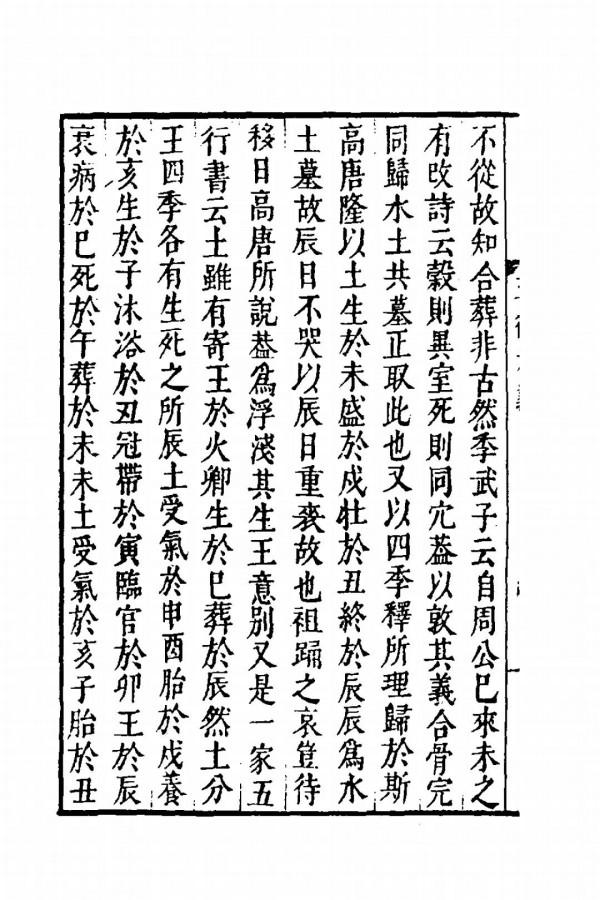 不從故知合葬非古然季武子云自周公巳來未之
有攺詩云穀則異室死則同穴葢以敦其義合骨完
同歸水土共墓正取此也又以四季釋所理歸於斯
高唐隆以土生於未盛於戍壯於丑終於辰辰爲水
土墓故辰日不哭以辰日重喪故也祖踊之哀豈待
移日高唐所說葢爲浮淺其生王意别又是一家五
行書云土雖有寄王於火鄉生於巳葬於辰然土分
王四季各有生死之所辰土受氣於申酉胎於戍養
於亥生於子沐浴於丑冠帶於寅臨官於卯王於辰
衰病於巳死於午葬於未未土受氣於亥子胎於丑